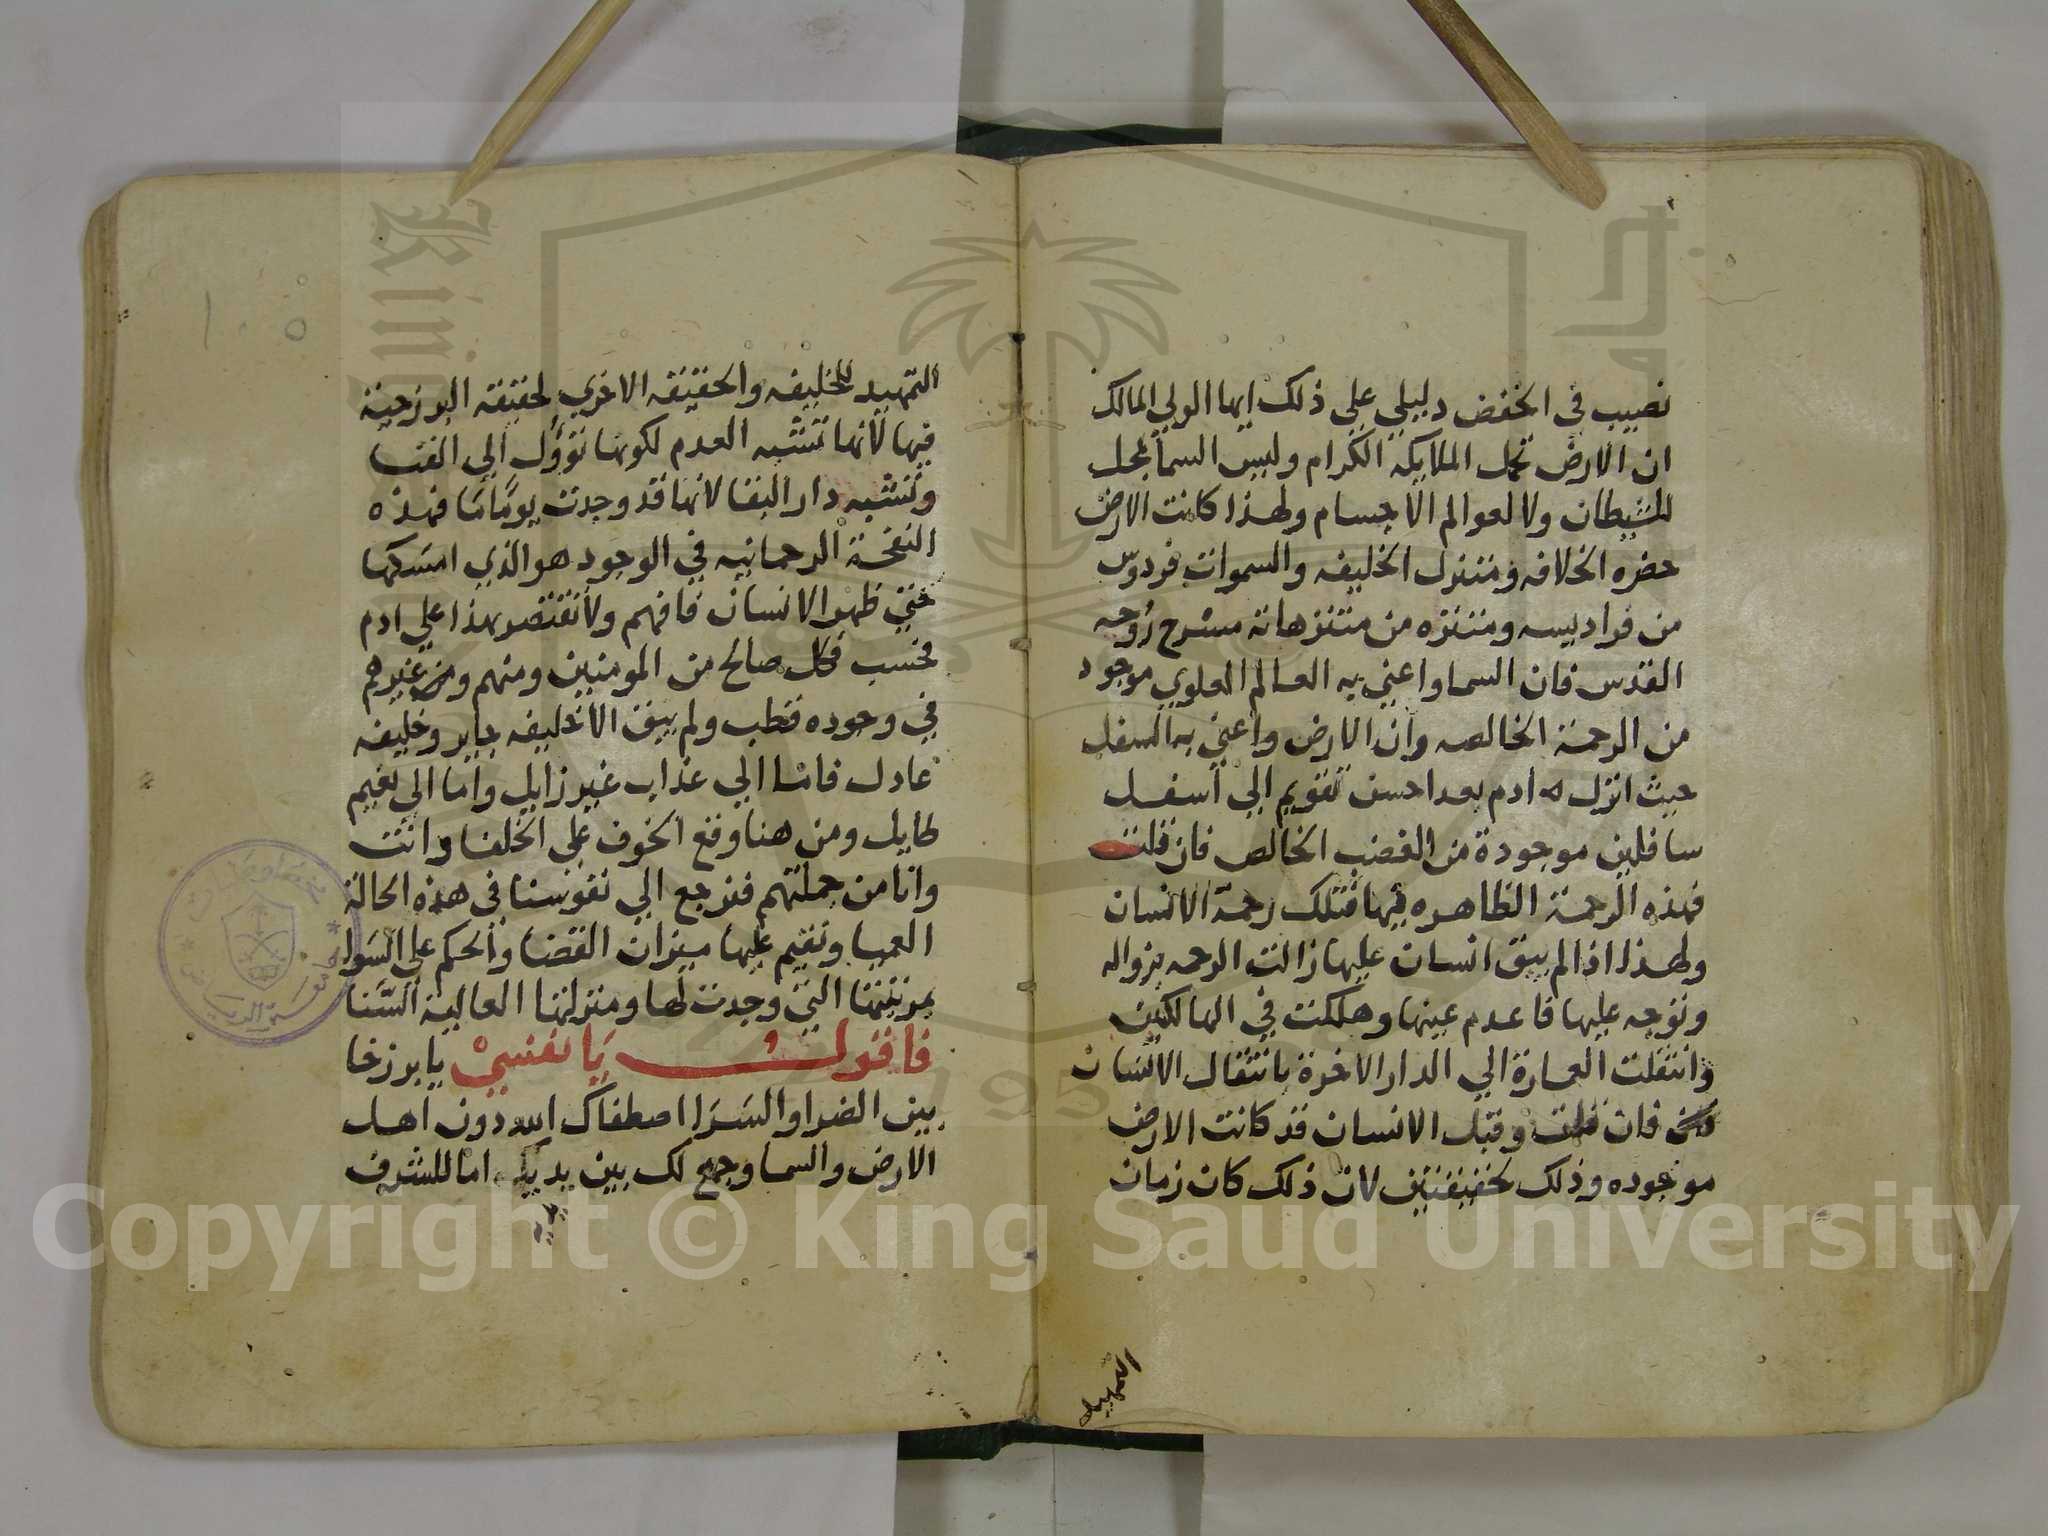 نصيب في الخفض دليلي على ذلك ايها الولي المالك
ان الارض تحمل الملايكه الكرام وليس السما بمحل
للشيطان ولا لعوالم الاجسام ولهذا كانت الارض
حضره الخلافه ومتنزل الخليفه والسموات فردوس
من فراديسه ومتنزه من متنزهاته مسرح روحه
القدس فان السما واعني به العالم العلوي موجود
من الرحمة الخالصه وان الارض واعني به السفل
حيث انزل ادم بعد احسن تقويم الي اسفل
سافلين موجودة من الغضب الخالص فان قلت
فهذه الرحمة الظاهره فيها فتلك رحمة الانسان
ولهذا اذا لم يبق انسان عليها زالت الرحمه بزواله
وتوجه عليها فاعدم عينها وهلكت في الهالكين
وانتقلت العمارة الي الدار الاخرة بانتقال الانسان
فان قلت وقبل الانسان قد كانت الارض
موجوده وذلك لحقيقتين لان ذلك كان زمان
التمهيد
التمهيد للخليفه والحقيقه الاخري لحقيقه البرزخية
فيها لانها تشبه العدم لكونها تؤول الي الفنا
وتشبه دار البقا لانها قد وجدت يوما ما فهذه
النفخة الرحمانيه في الوجود هو الذي امسكها
حتي ظهر الانسان فافهم ولا تقتصر بهذا علي ادم
فحسب فكل صالح من المومنين ومنهم ومن غيرهم
في وجوده قطب ولم يبق الا خليفه جاير وخليفه
عادل فاما الي عذاب غير زايل واما الي نعيم
طايل ومن هنا وقع الخوف علي الخلفا وانت
وانا من جملتهم فنرجع الي نفوسنا في هذه الحالة
العميا ونقيم عليها ميزان القضا والحكم علي السوا
بمرتبتها التي وجدت لها ومنزلتها العالية السنا
فاقول يا نفسي يا برزخا
بين الضرا والسرا اصطفاك الله دون اهل
الارض والسما وجمع لك بين يديك اما للشرف
Copyright © King Saud University
1957